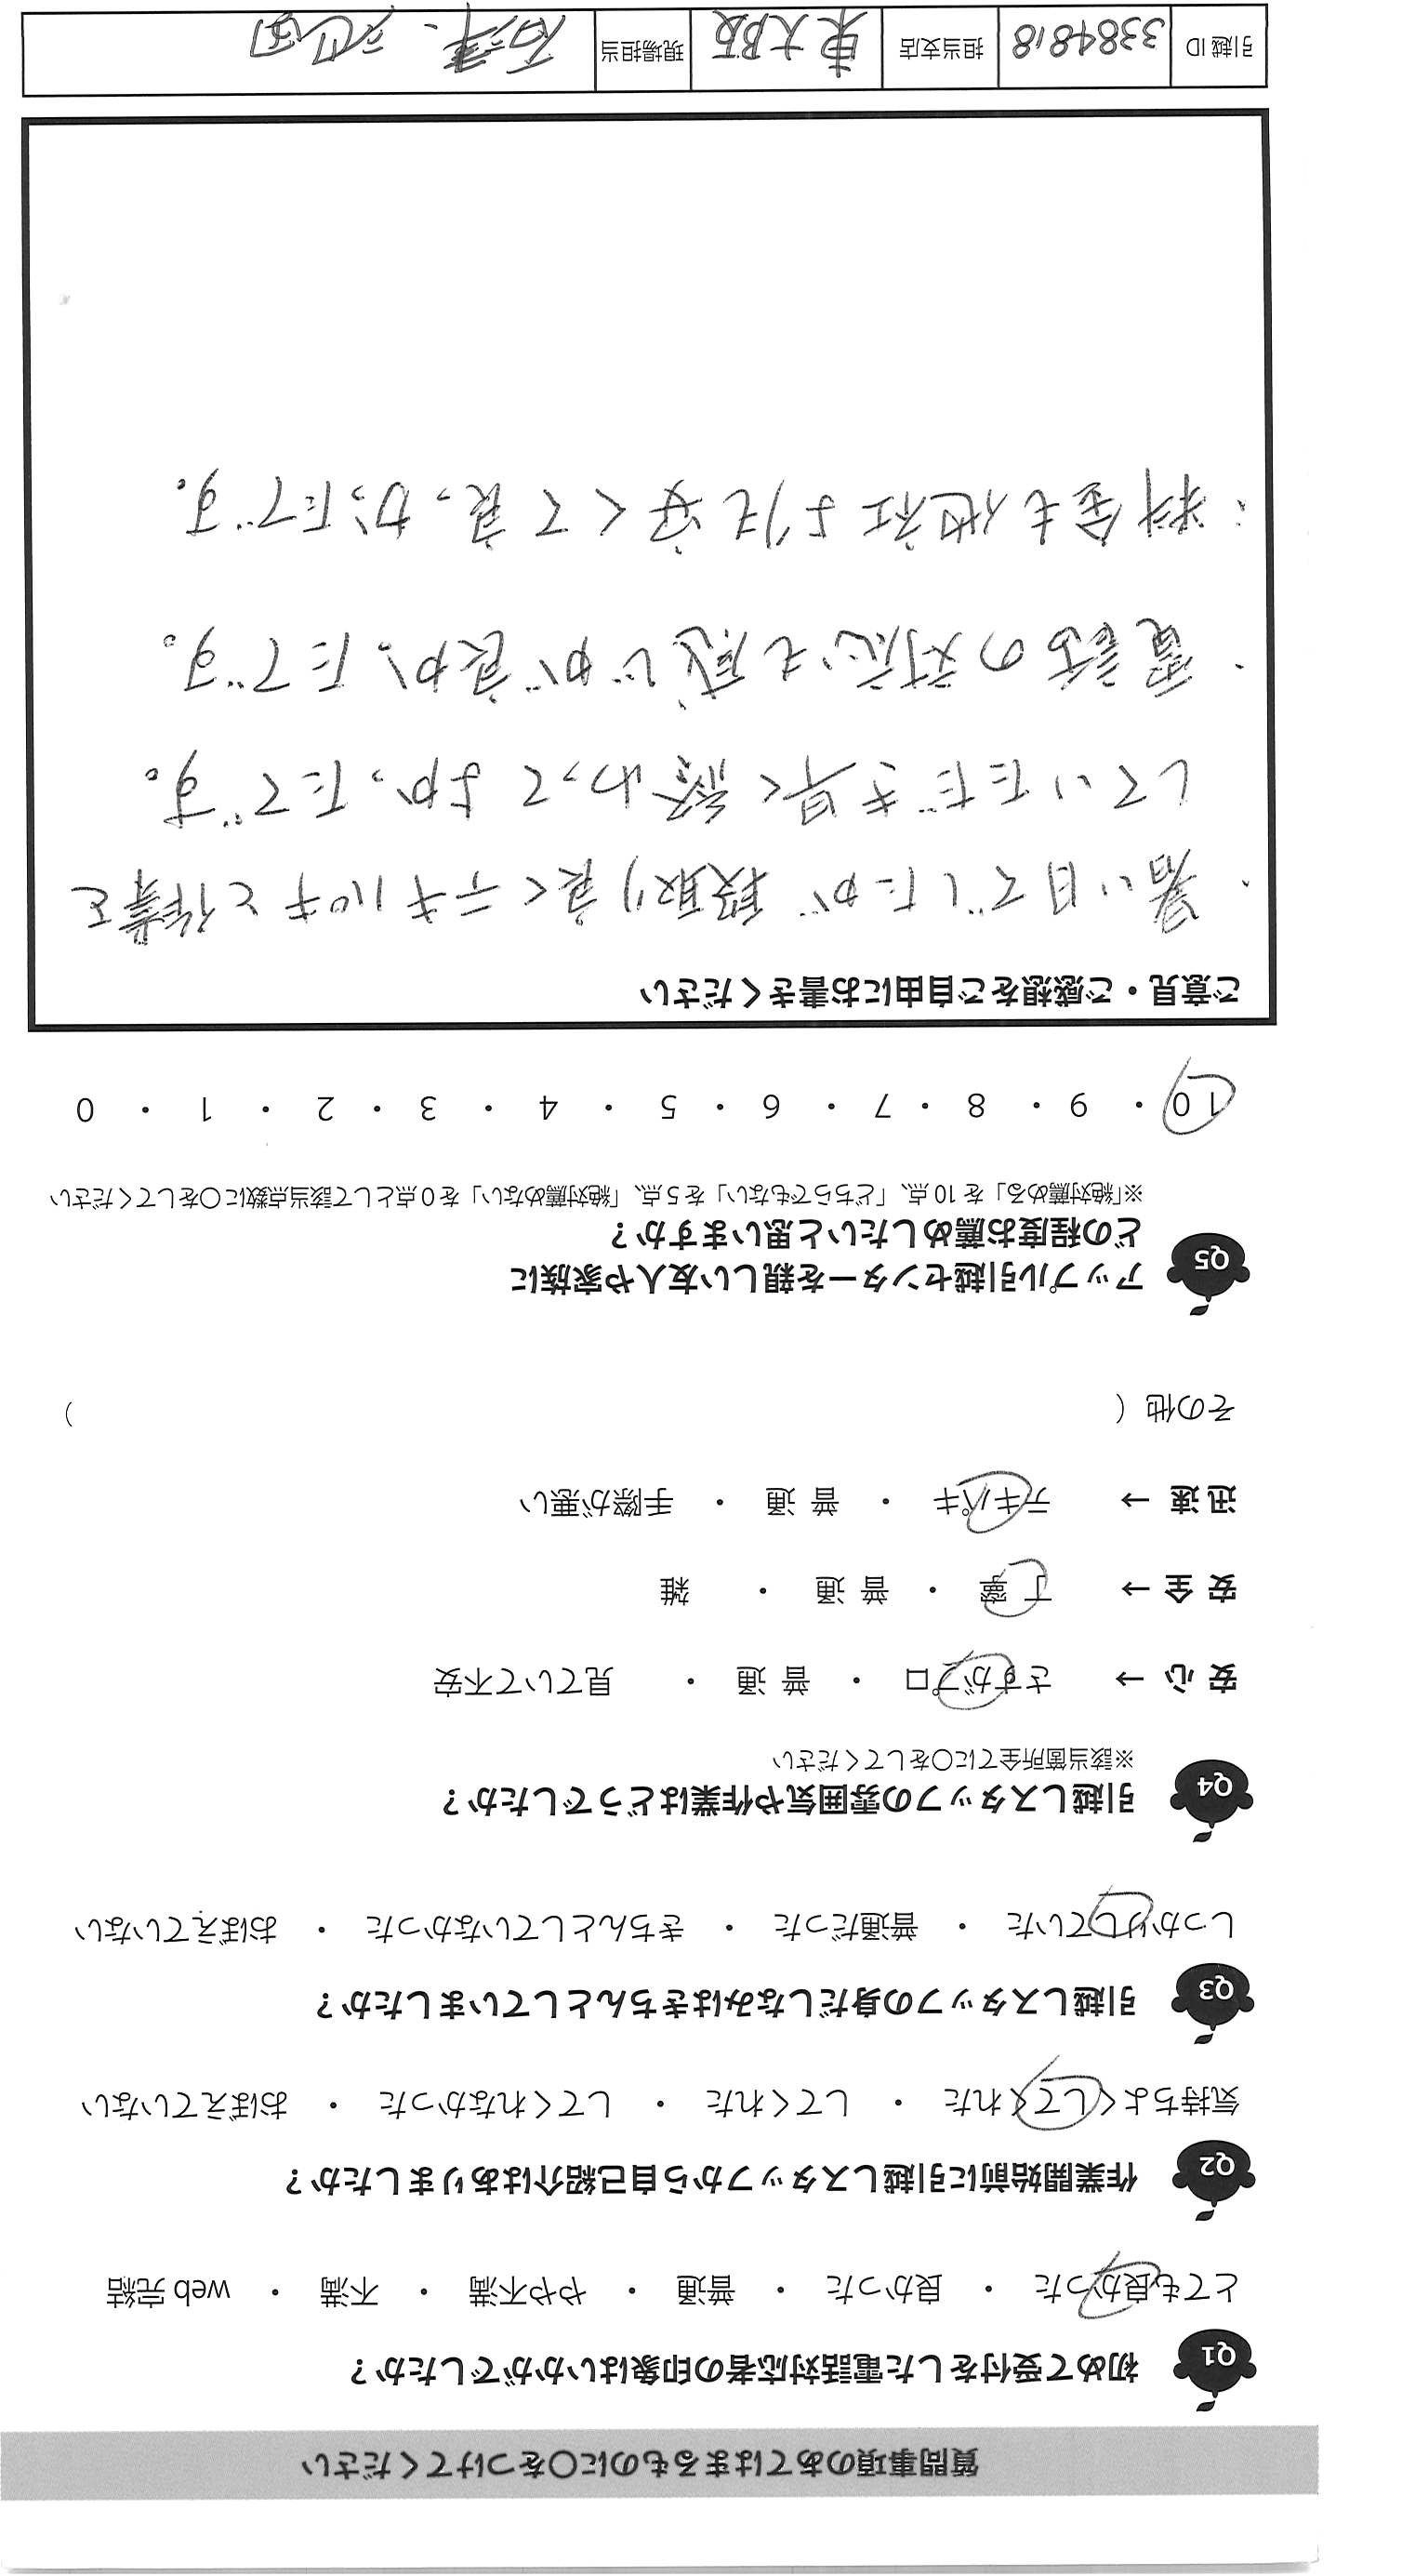 質問事項のあてはまるものに〇をつけてください
Q1 初めて受付をした電話対応者の印象はいかがでしたか？
とても良かった ・ 良かった ・ 普通 ・ やや不満 ・ 不満 ・ web 完結
Q2 作業開始前に引越しスタッフから自己紹介はありましたか？
気持ちよくしてくれた ・ してくれた ・ してくれなかった ・ おぼえていない
Q3 引越しスタッフの身だしなみはきちんとしていましたか？
しっかりしていた ・ 普通だった ・ きちんとしていなかった ・ おぼえていない
Q4 引越しスタッフの雰囲気や作業はどうでしたか？
※該当箇所全てに〇をしてください
安 心 → さすがプロ ・ 普 通 ・ 見ていて不安
安 全 → 丁 寧 ・ 普 通 ・ 雑
迅 速 → テキパキ ・ 普 通 ・ 手際が悪い
その他（ ）
Q5 アップル引越センターを親しい友人や家族に
どの程度お薦めしたいと思いますか？
※「絶対薦める」を 10 点、「どちらでもない」を 5 点、「絶対薦めない」を 0 点として該当点数に〇をしてください
10 ・ 9 ・ 8 ・ 7 ・ 6 ・ 5 ・ 4 ・ 3 ・ 2 ・ 1 ・ 0
ご意見・ご感想をご自由にお書きください
・暑い日でしたが段取り良くテキパキと作業を
していただき早く終わってよかったです。
・電話の対応も感じが良かったです。
・料金も他社よりも安くて良かったです。
引越 ID 3384818 担当支店 東大阪 現場担当 石津、